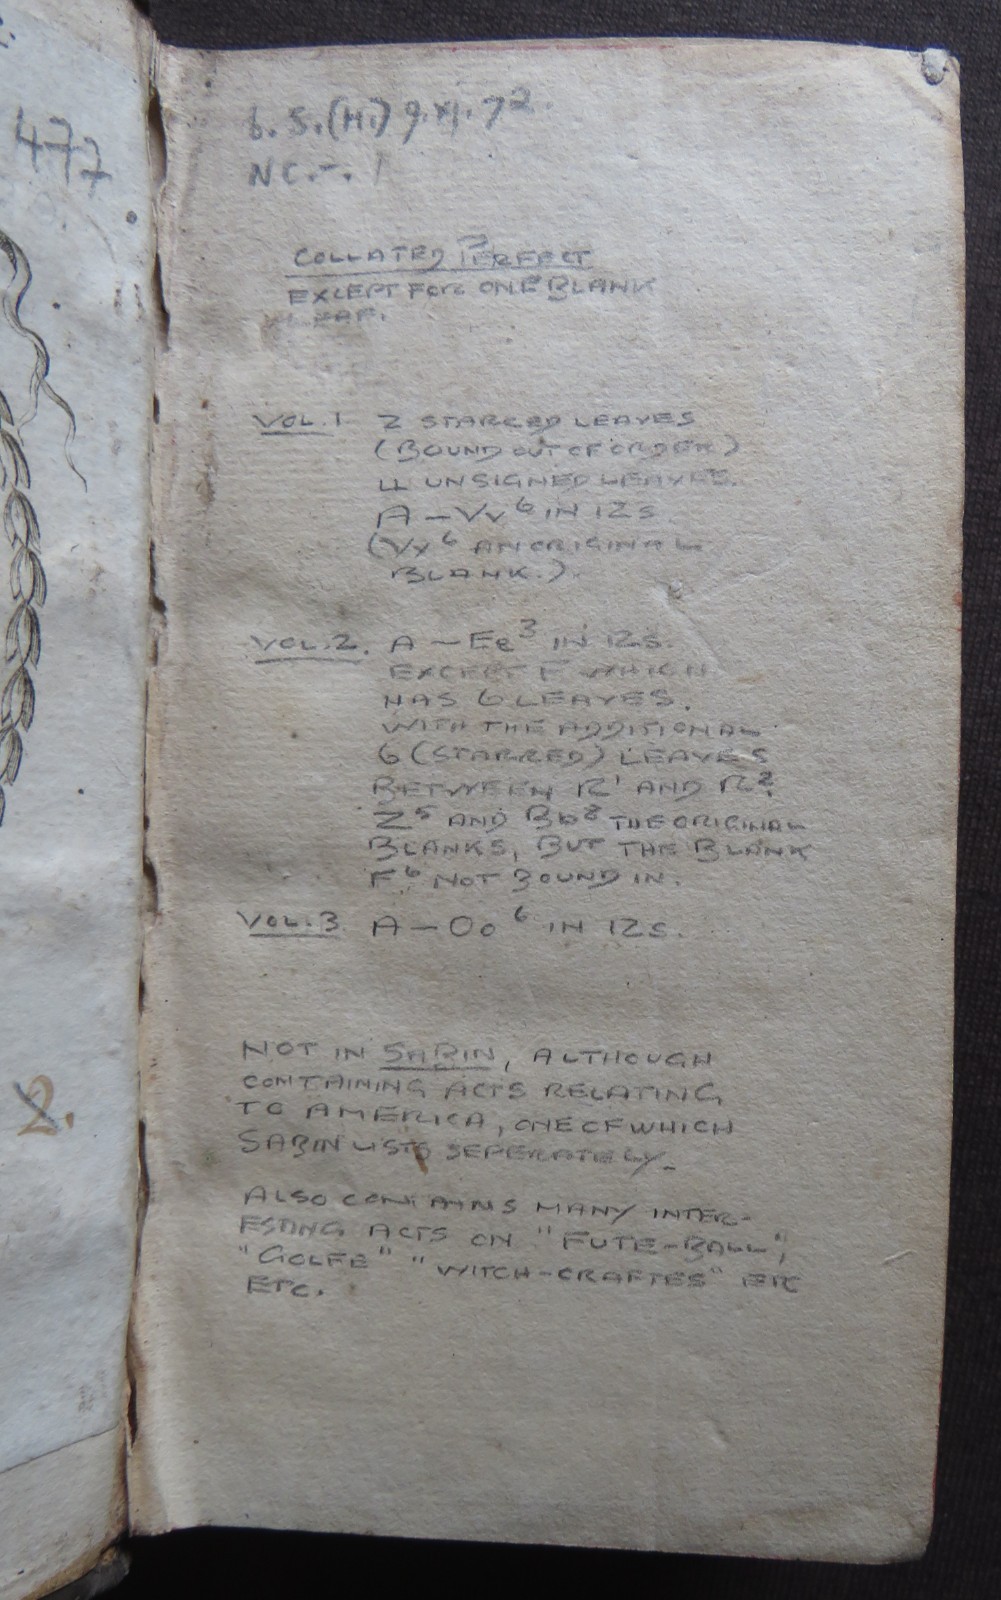 477
2.
b. S. (Hi) 9.xi.72.
NC.-.
COLLATED PERFECT
EXCEPT FOR ONE BLANK
LEAF.
VOL.1 2 STARRED LEAVES
(BOUND OUT OF ORDER)
LL UNSIGNED LEAVES.
A – Vv⁶ IN 12s
(Vv⁶ AN ORIGINAL
BLANK.)
VOL.2. A – Ee³ IN 12s.
EXCEPT F WHICH
HAS 6 LEAVES.
WITH THE ADDITIONAL
6 (STARRED) LEAVES
BETWEEN R¹ AND R².
Z⁵ AND Bb⁸ THE ORIGINAL
BLANKS, BUT THE BLANK
F⁶ NOT BOUND IN.
VOL.3 A – Oo⁶ IN 12s.
NOT IN SABIN, ALTHOUGH
CONTAINING ACTS RELATING
TO AMERICA, ONE OF WHICH
SABIN LISTS SEPERATELY.
ALSO CONTAINS MANY INTER-
ESTING ACTS ON "FUTE-BALL",
"GOLFE" "WITCH-CRAFTES" ETC
ETC.